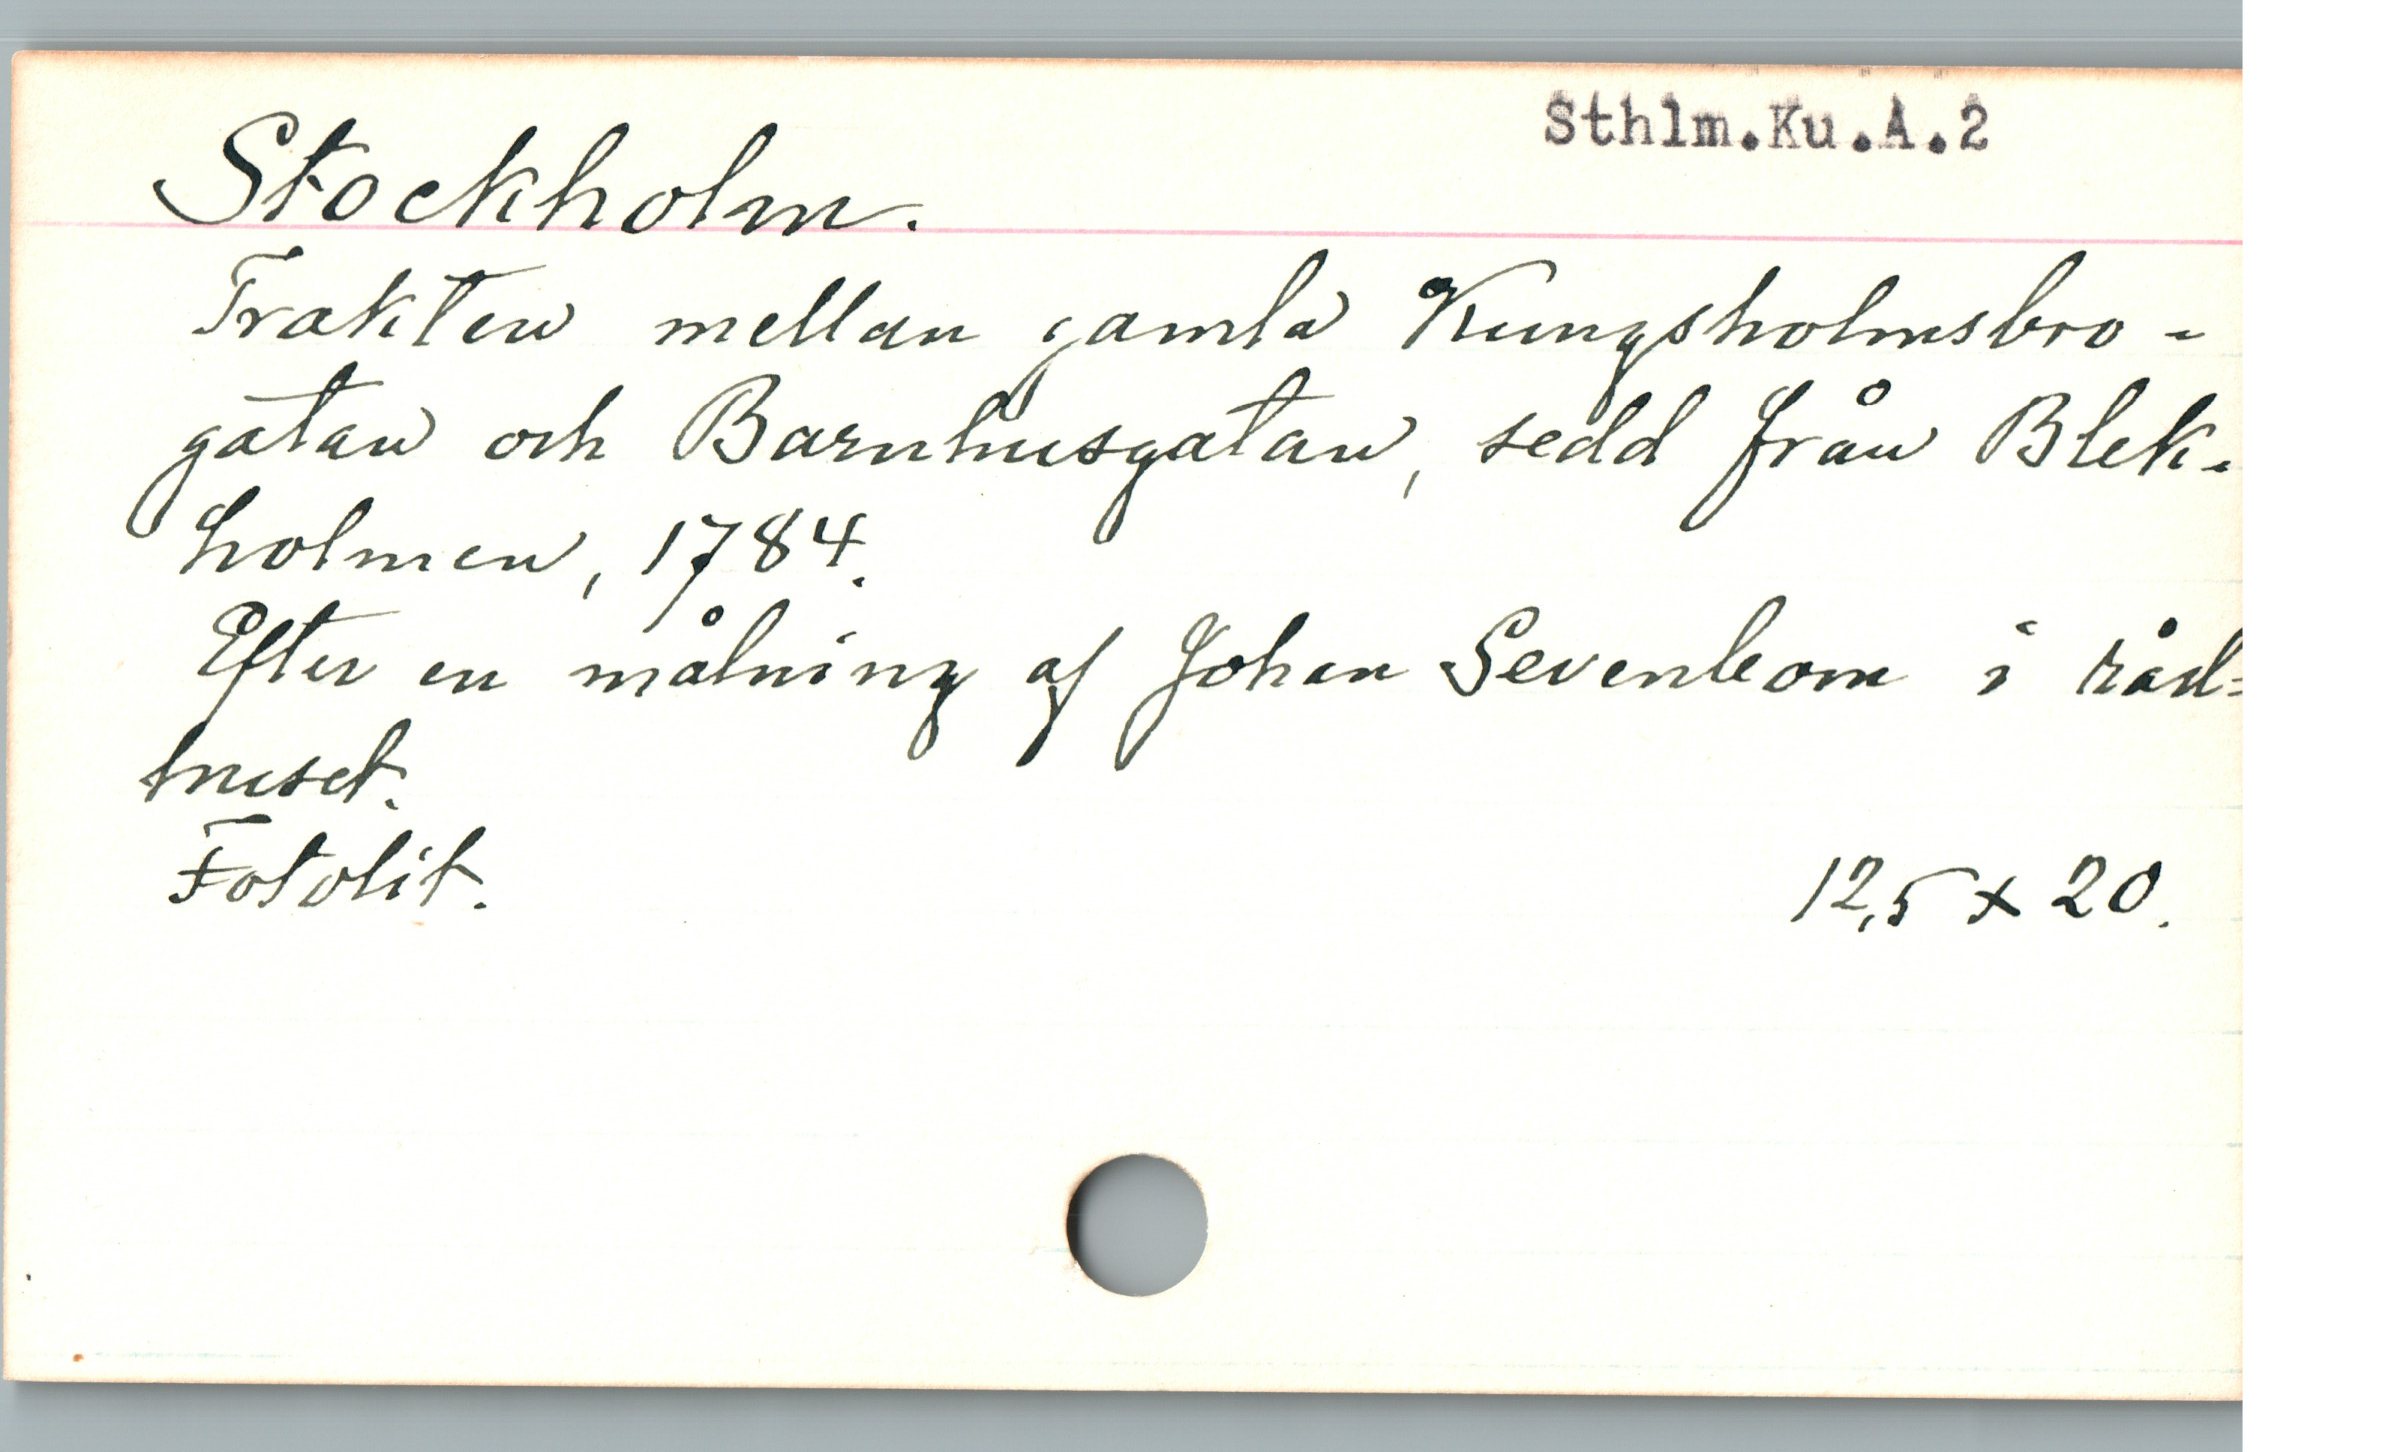 Sthlm.Ku.A.2
Stockholm.
Trakten mellan gamla Kungsholmsbro-
gatan och Barnhusgatan, sedd från Blek-
holmen, 1784.
Efter en målning af Johan Sevenbom i råd=
huset.
Fotolit. 12,5 x 20.